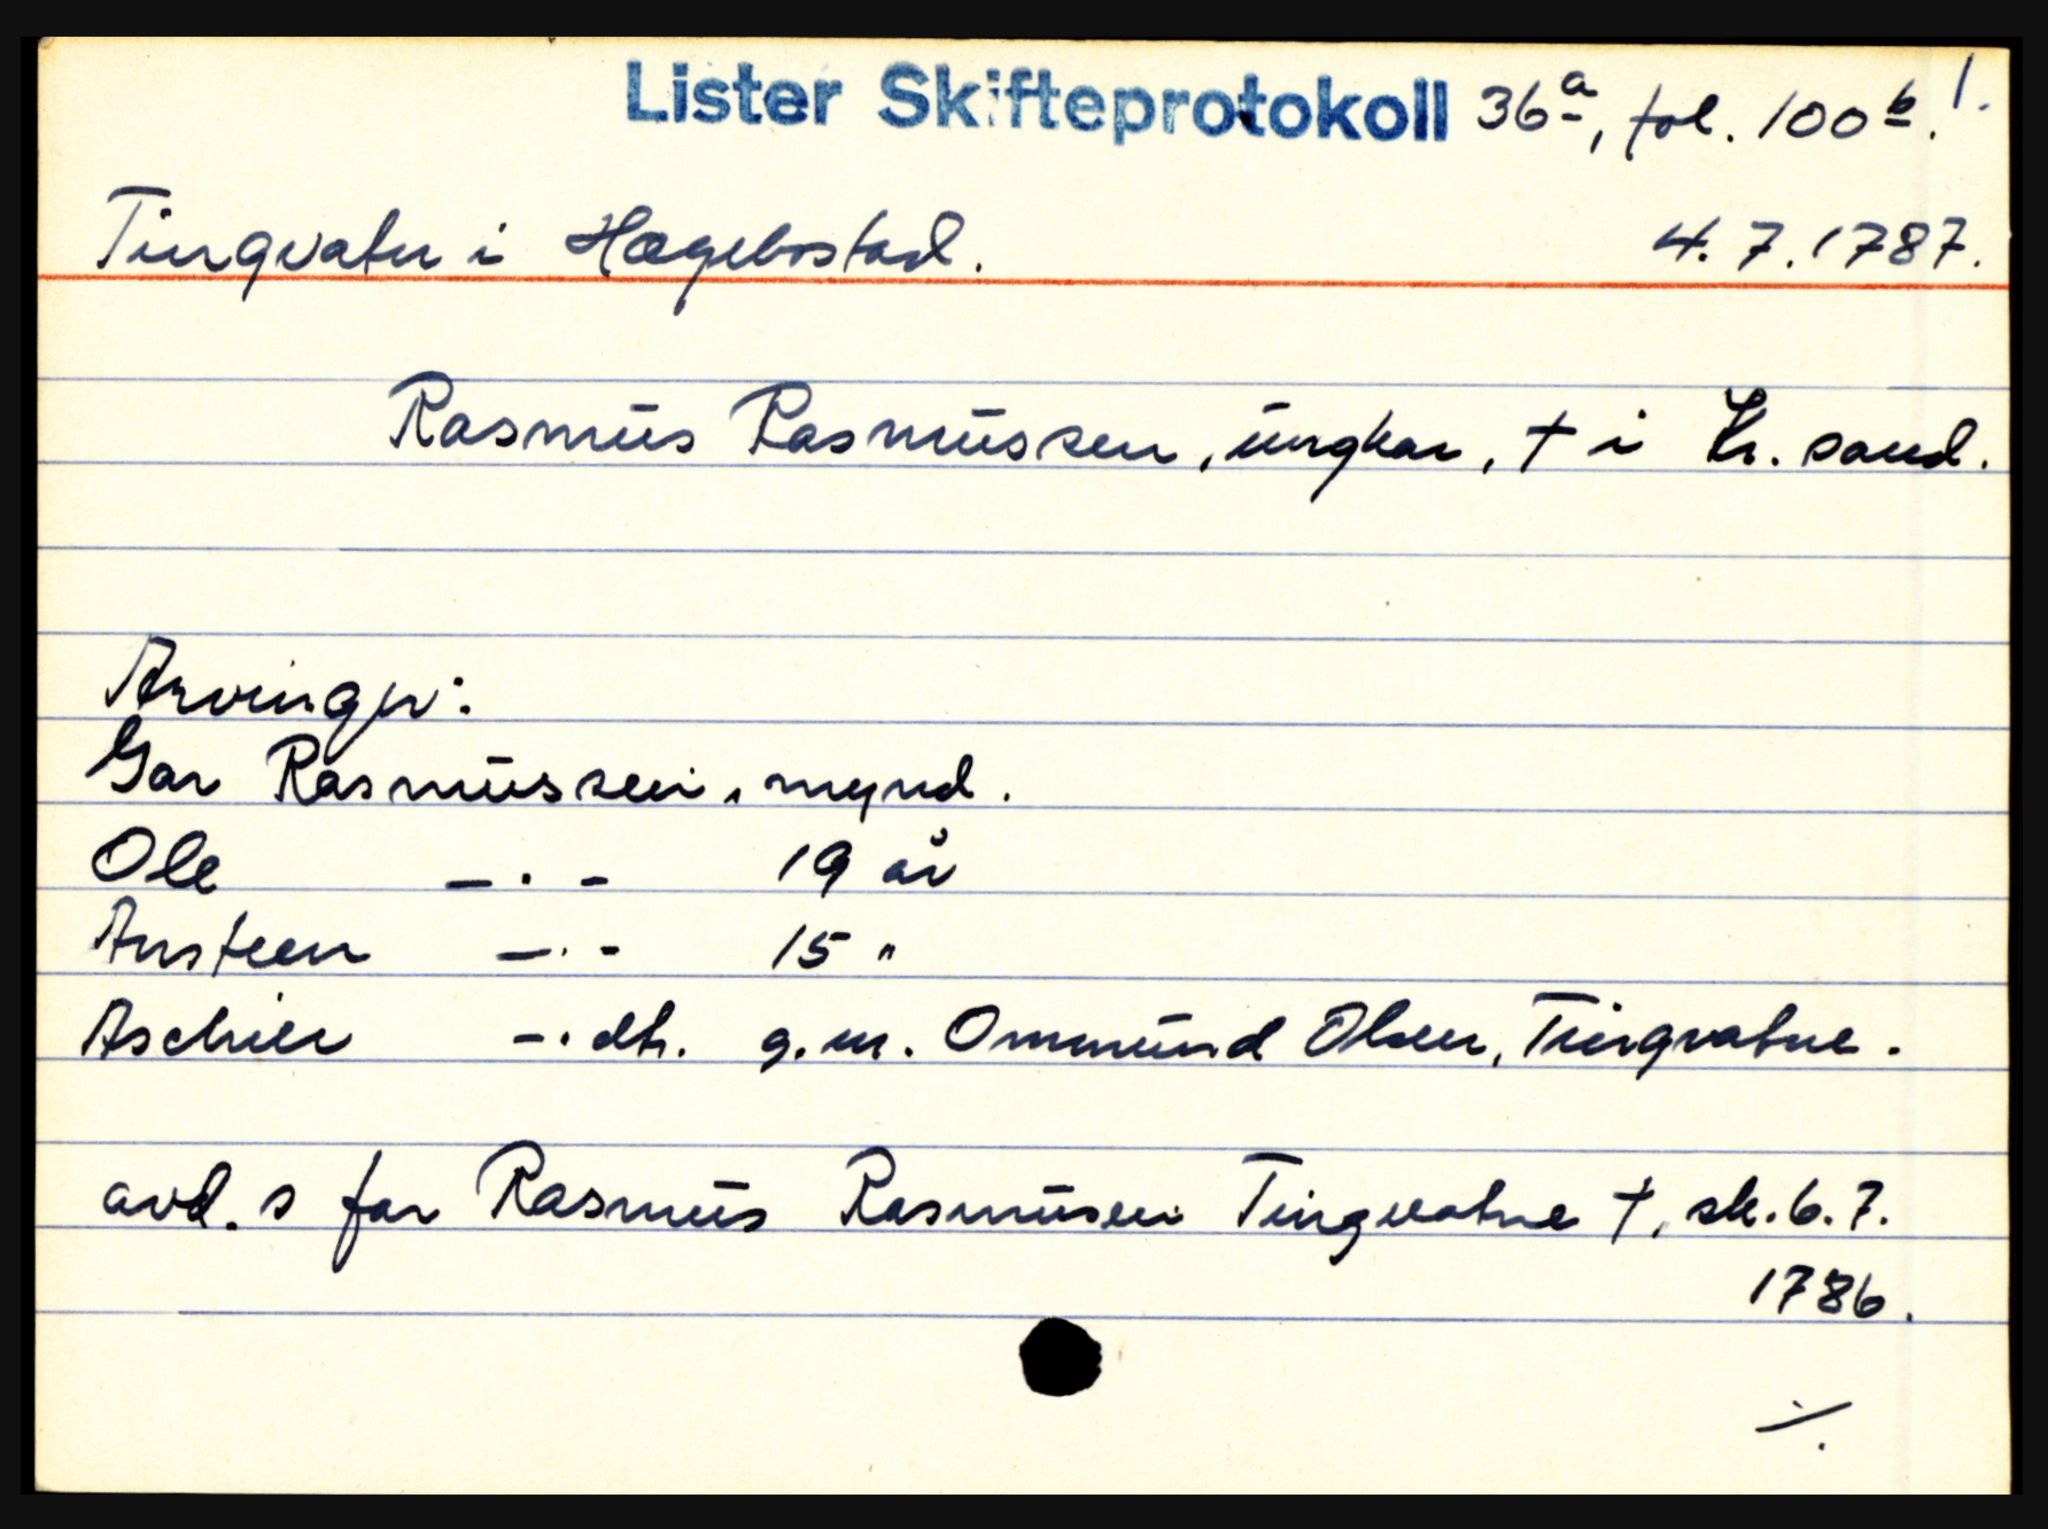 Lister Skifteprotokoll 36a, fol. 100b. 1.
Tingvatn i Hægebostad. 4.7.1787.
Rasmus Rasmussen, ungkar, † i Kr.sand.
Arvinger:
Gar Rasmussen, mynd.
Ole —·— 19 år
Ansteen —·— 15 "
Aschier —·dtr. g.m. Ommund Olsen, Tingvatne.
avd. s far Rasmus Rasmusen Tingvatne †, sk. 6.7.
1786.
./.